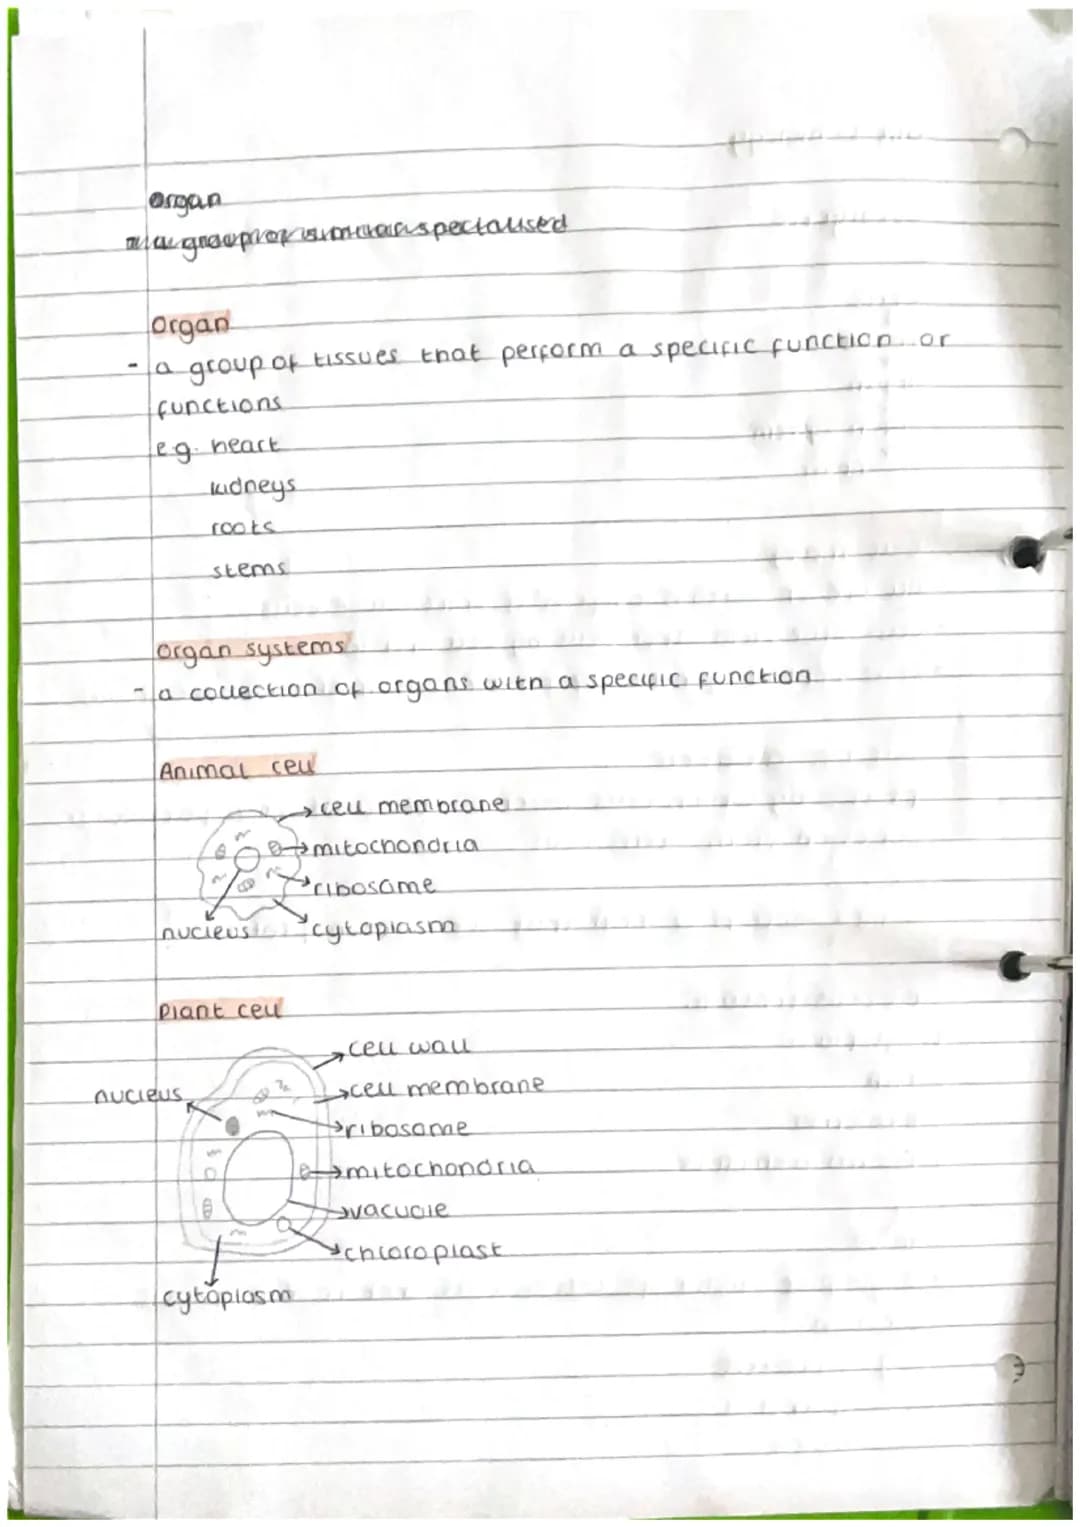 Organ
a group of similar specialised
Organ
- a group of tissues that perform a specific function or
functions
e.g. heart
kidneys
roots
stems
Organ systems
- a collection of organs with a specific function
Animal cell
cell membrane
mitochondria
ribosome
nucleus cytoplasm
Plant cell
cell wall
nucleus cell membrane
ribosome
mitochondria
vacuole
chloroplast
cytoplasm